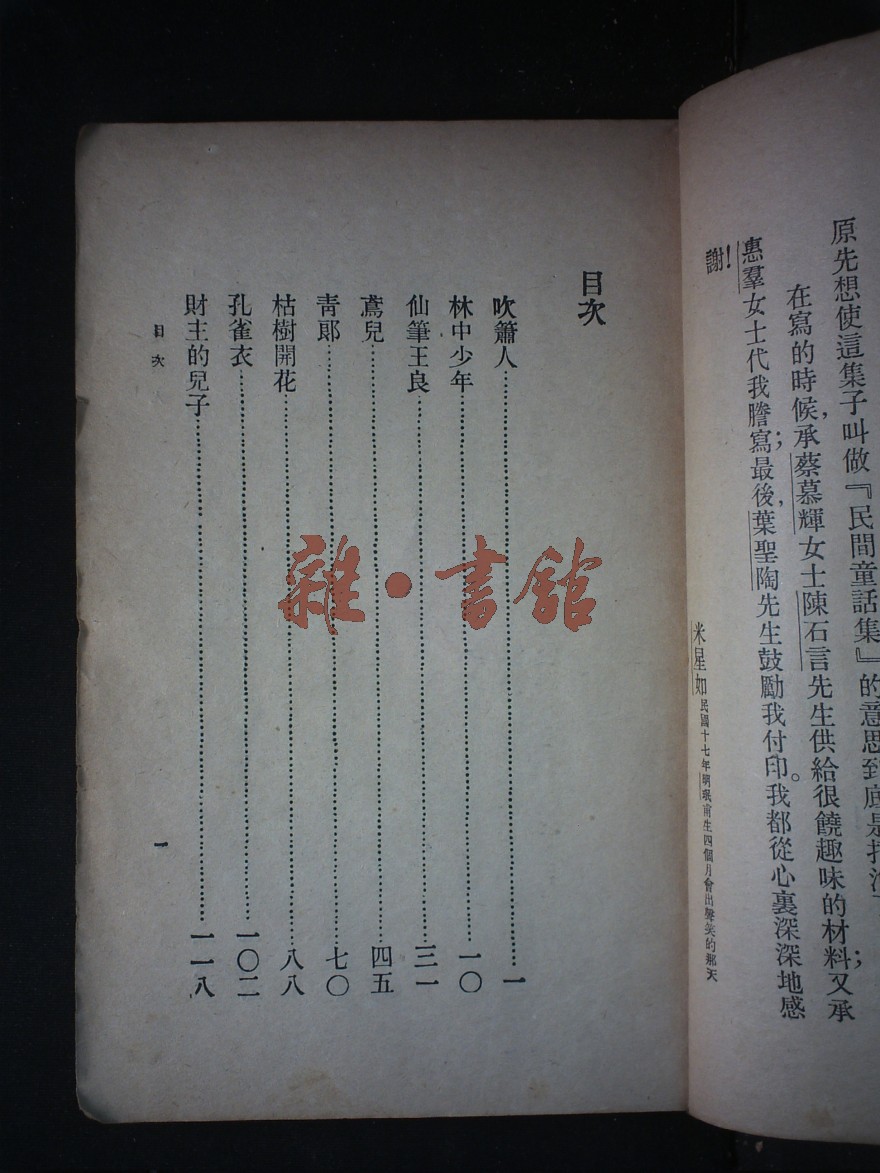 原先想使這集子叫做『民間童話集』的意思到底是打消
在寫的時候，承蔡慕輝女士陳石言先生供給很饒趣味的材料；又承
惠羣女士代我謄寫；最後，葉聖陶先生鼓勵我付印。我都從心裏深深地感
謝！
米星如 民國十七年 生四個月會出聲笑的那天
目次
吹簫人……一
林中少年……一〇
仙筆王良……三一
鳶兒……四五
青郎……七〇
枯樹開花……八八
孔雀衣……一〇二
財主的兒子……一一八
目次
一
雜·書館